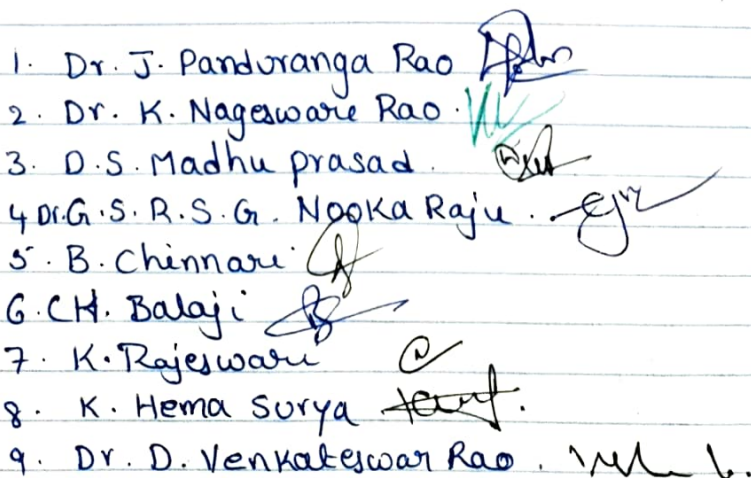 1. Dr. J. Panduranga Rao
2. Dr. K. Nageswara Rao.
3. D.S. Madhu prasad.
4 Dr.G.S.R.S.G. Nooka Raju.
5. B. Chinnari
6. CH. Balaji
7. K. Rajeswari
8. K. Hema Surya
9. Dr. D. Venkateswar Rao.